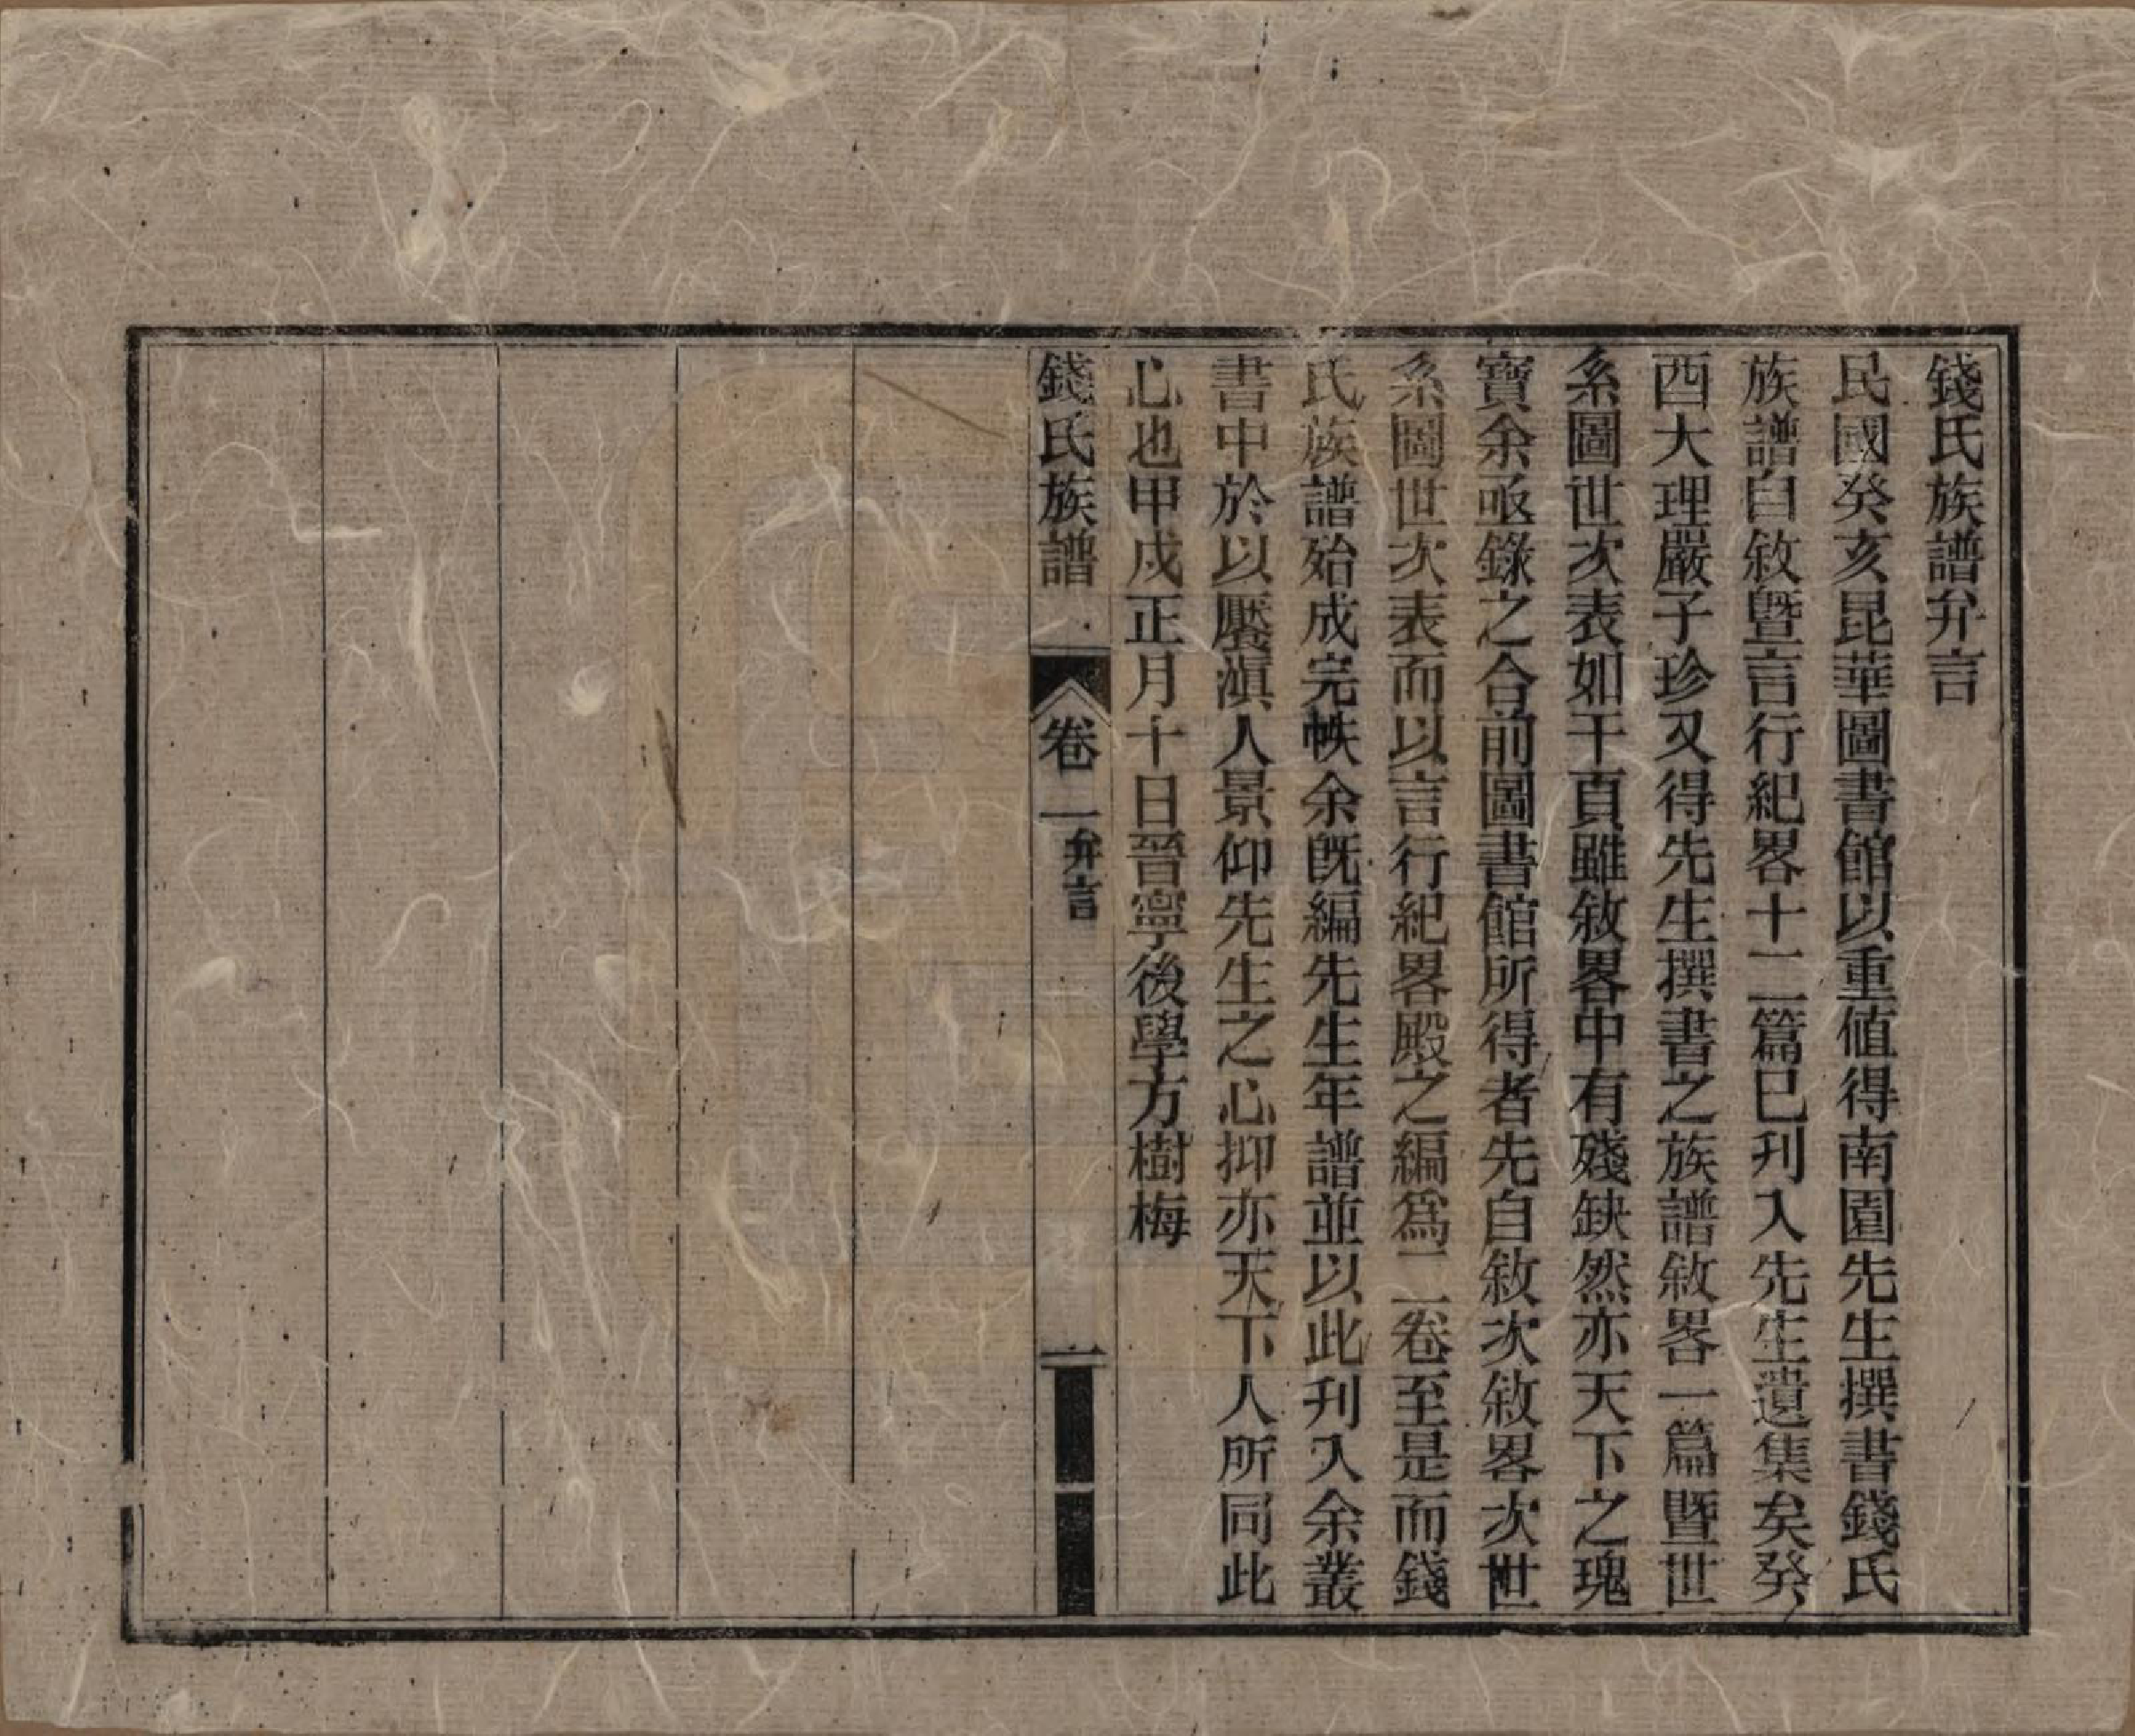 錢氏族譜弁言
民國癸亥昆華圖書館以重值得南園先生撰書錢氏
族譜自敘曁言行紀畧十二篇已刋入先生遺集矣癸
酉大理嚴子珍又得先生撰書之族譜敘畧一篇曁世
系圖世次表如干頁雖敘畧中有殘缺然亦天下之瑰
寶余亟錄之合前圖書館所得者先自敘次敘畧次世
系圖世次表而以言行紀畧殿之編爲二卷至是而錢
氏族譜始成完帙余旣編先生年譜並以此刋入余叢
書中於以饜滇人景仰先生之心抑亦天下人所同此
心也甲戍正月十日晉寧後學方樹梅
錢氏族譜 卷一 弁言 一